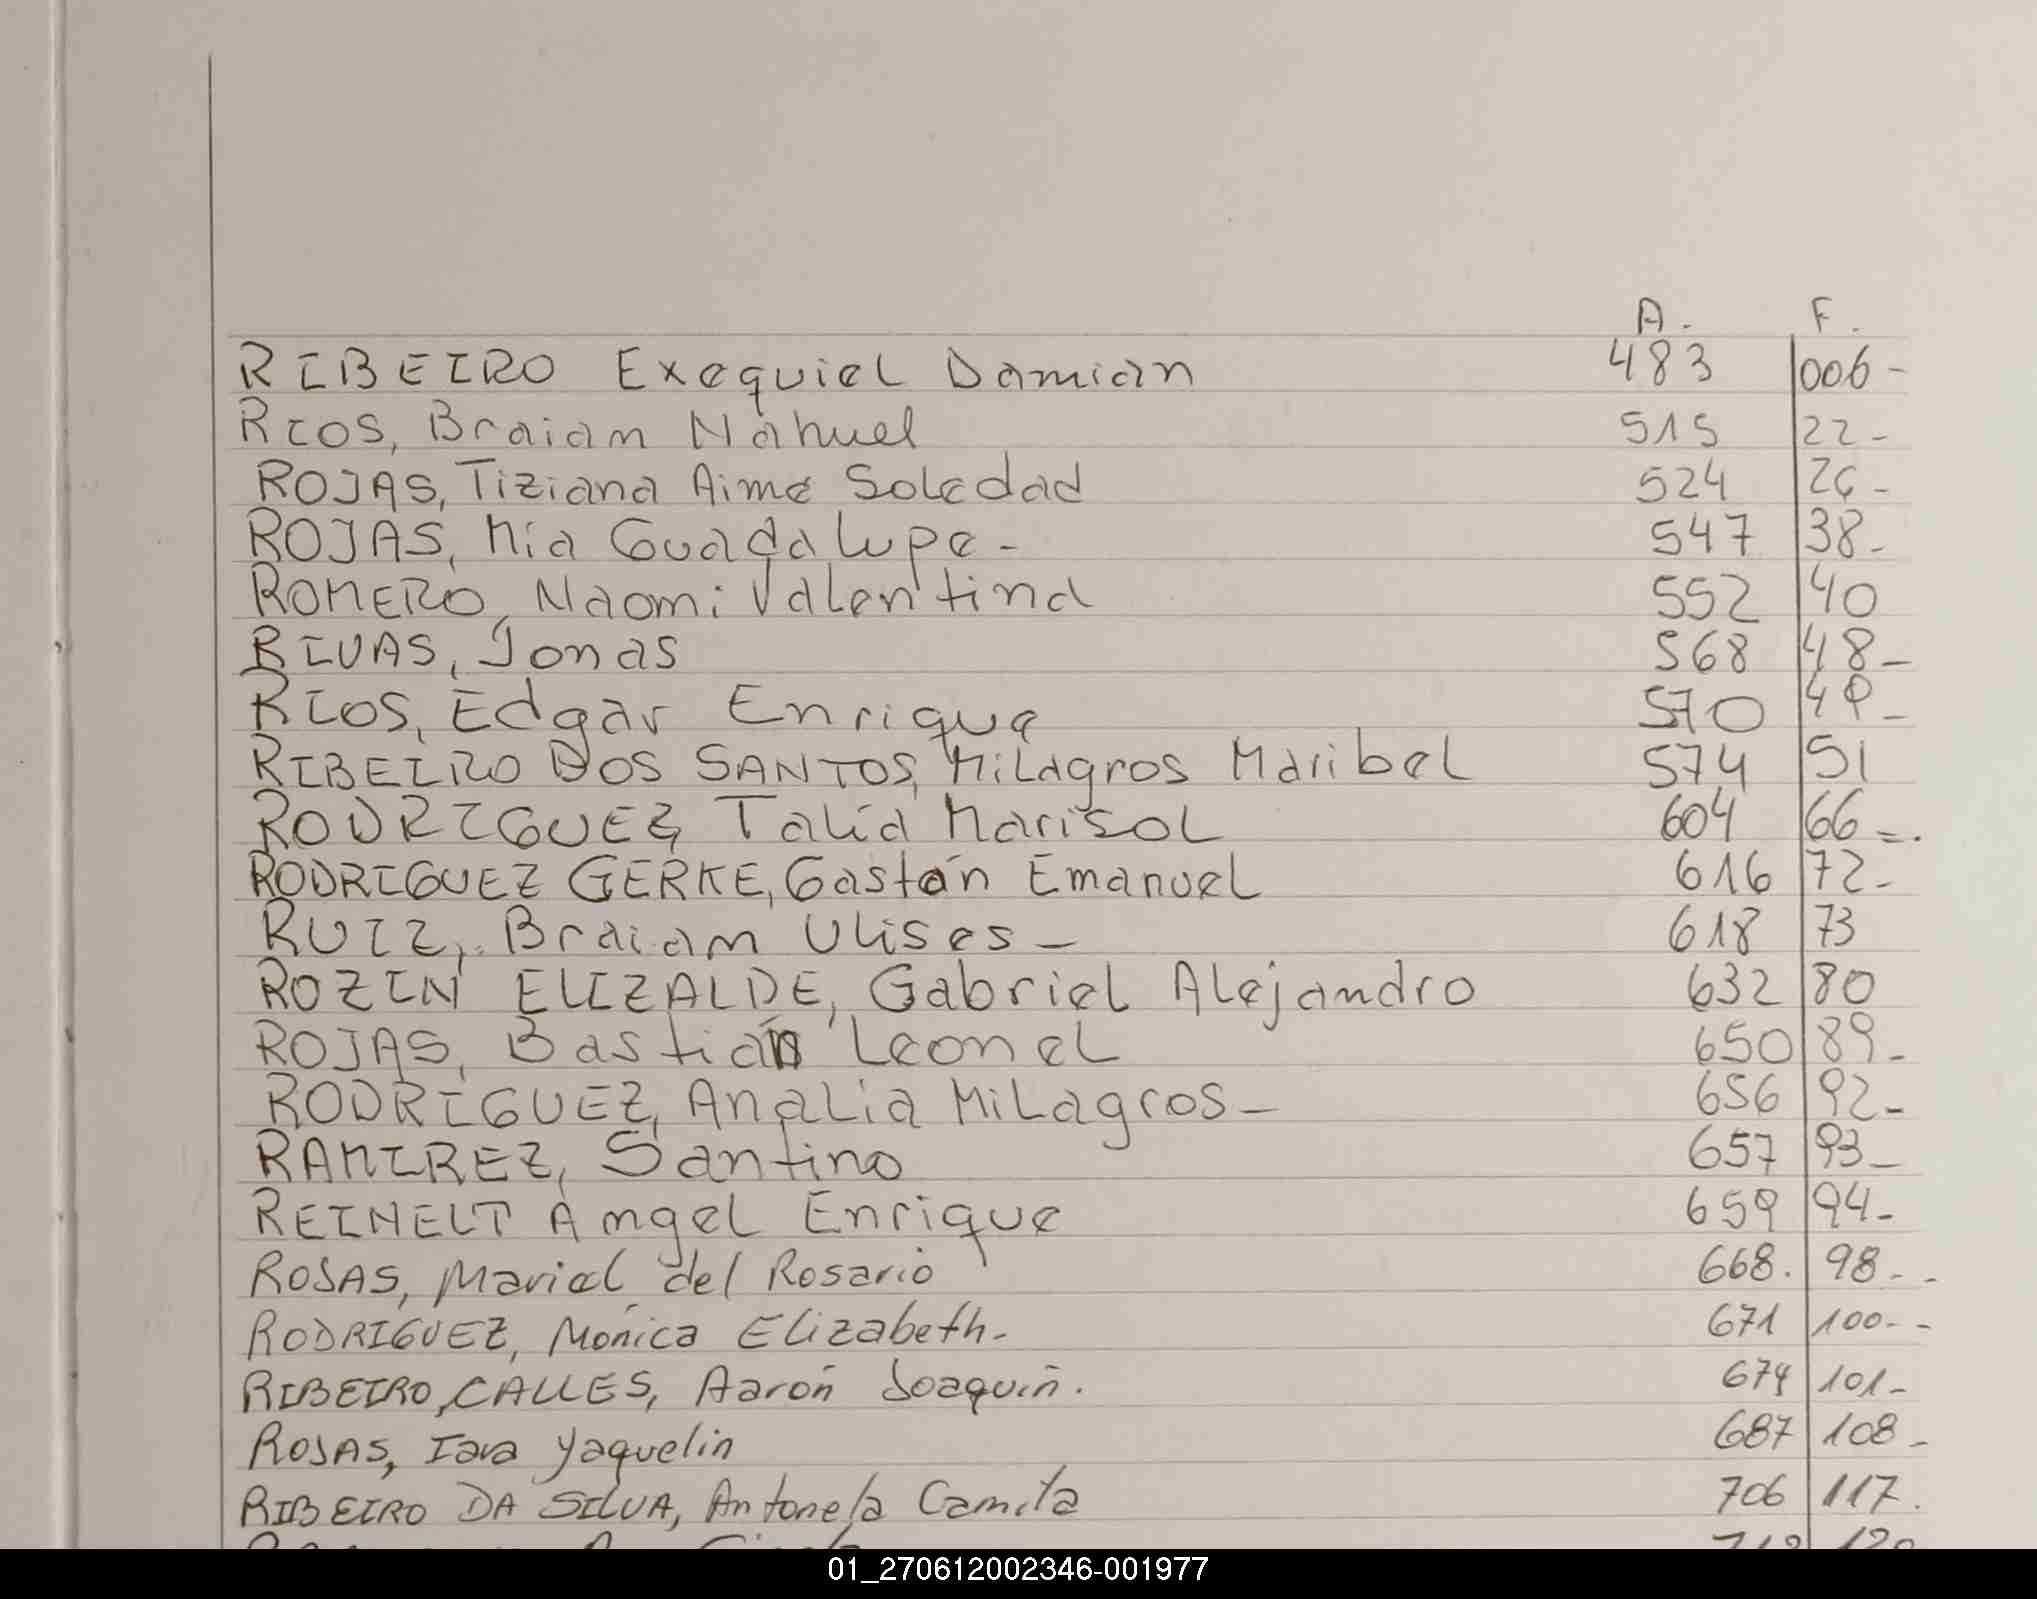 A. F.
RIBEIRO Exequiel Damian 483 006-
RIOS, Braian Nahuel 515 22-
ROJAS, Tiziana Aime Soledad 524 26-
ROJAS, Mia Guadalupe- 547 38-
ROMERO, Naomi Valentina 552 40
RIVAS, Jonas 568 48-
RIOS, Edgar Enrique 570 49-
RIBEIRO DOS SANTOS, Milagros Maribel 574 51
RODRIGUEZ, Talía Marisol 604 66-.
RODRIGUEZ GERKE, Gastón Emanuel 616 72-
RUIZ, Braian Ulises- 618 73
ROZIN ELIZALDE, Gabriel Alejandro 632 80
ROJAS, Bastián Leonel 650 89-
RODRIGUEZ, Analia Milagros- 656 92-
RAMIREZ, Santino 657 93-
REINELT Angel Enrique 659 94-
ROJAS, Mariel del Rosario 668. 98--
RODRIGUEZ, Mónica Elizabeth- 671 100--
RIBEIRO, CALLES, Aarón Joaquín. 674 101-
ROJAS, Iara Yaquelin 687 108-
RIBEIRO DA SILVA, Antonela Camila 706 117.
01_270612002346-001977